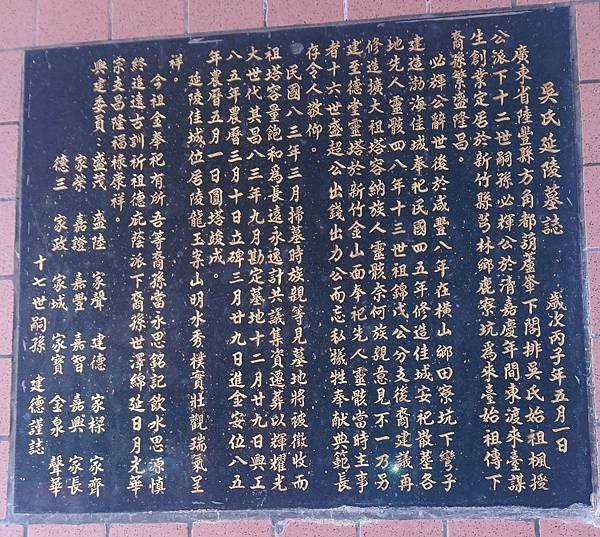 吳氏延陵墓誌
歲次丙子年五月一日
廣東省陸豐縣方角都葫蘆輋下閣排吳氏始祖楓授
公派下十二世嗣孫必輝公於清嘉慶年間東渡來臺謀
生創業定居於新竹縣芎林鄉鹿寮坑為來臺始祖傳下
裔孫繁盛隆昌。
必輝公辭世後於咸豐八年在橫山鄉田寮坑下彎子
建造渤海佳城奉祀民國四五年修造佳城安祀散塟各
地先人靈骸四八年十三世祖錦茂公分支後裔建議再
修造擴大祖塔容納族人靈骸奈何族親意見不一乃另
建至德堂靈塔於新竹金山面奉祀先人靈骸當時主事
者十六世盛超公出錢出力公而忘私犧牲奉獻典範長
存令人敬仰。
民國八三年三月掃墓時族親等見墓地將被徵收而
祖塔容量飽和為長遠永逸計共議集資遷葬以輝耀光
大世代其昌八三年九月勘定墓地十二月廿九日興工
八五年農曆三月十日立碑三月廿九日進金安位八五
年農曆五月一日圓塔竣成。
延陵佳城位居陵龍王崒山明水秀樸實壯觀瑞氣呈
祥。
今祖金奉祀有所吾等裔孫當永思銘記飲水思源慎
終追遠古訓祈祖德庇蔭派下裔孫世澤綿延日月光華
宗支昌隆福祿薕祥。
興建委員：盛茂 盛陸 家聲 建德 家樑 家齊
家榮 嘉證 嘉豐 嘉智 嘉興 家長
德三 家政 家城 家寶 金泉 聲華
十七世嗣孫 建德謹誌